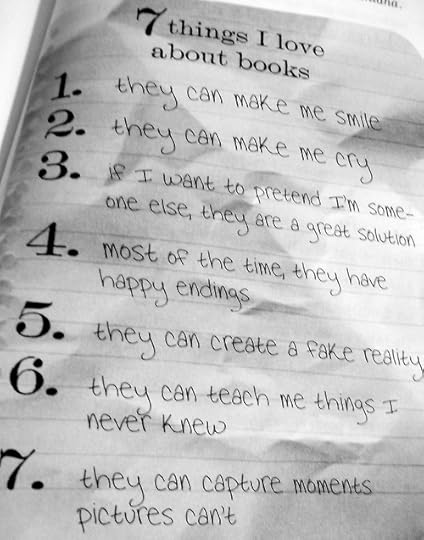 7 things I love
about books
1. they can make me smile
2. they can make me cry
3. if I want to pretend I'm some-
one else, they are a great solution
4. most of the time, they have
happy endings
5. they can create a fake reality
6. they can teach me things I
never knew
7. they can capture moments
pictures can't